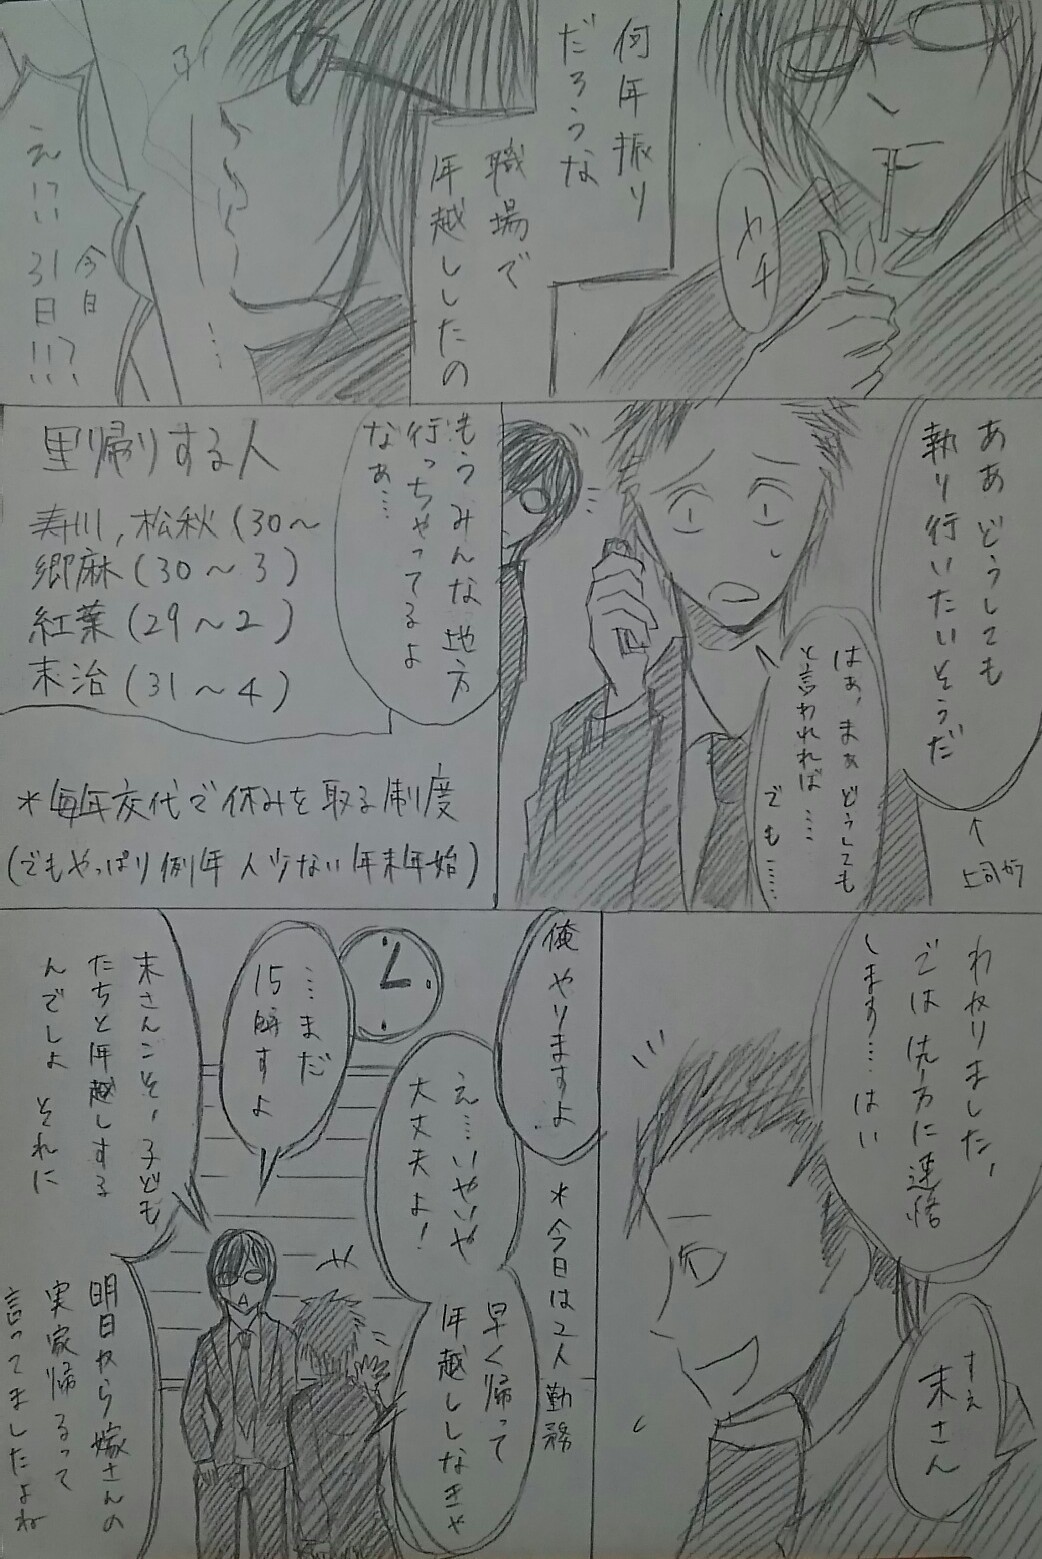 何年振り
だろうな
職場で
年越ししたの
カチ
フー
…
え!?今日
31日!!?
ああ どうしても
執り行いたいそうだ
↑
上司から
はあ、まぁ どうしても
と言われれば……
でも……
もうみんな地方
行っちゃってるよ
なぁ…
里帰りする人
寿川,松秋(30〜
郷麻(30〜3)
紅葉(29〜2)
末治(31〜4)
*毎年交代で休みを取る制度
(でもやっぱり例年人少ない年末年始)
わかりました、
では先方に連絡
します…はい
すぇ
末さん
俺やりますよ
*今日は2人勤務
え…いやいや
大丈夫よ!
早く帰って
年越ししなきゃ
…まだ
15時すよ
末さんこそ、子ども
たちと年越しする
んでしょ それに
明日から嫁さんの
実家帰るって
言ってましたよね